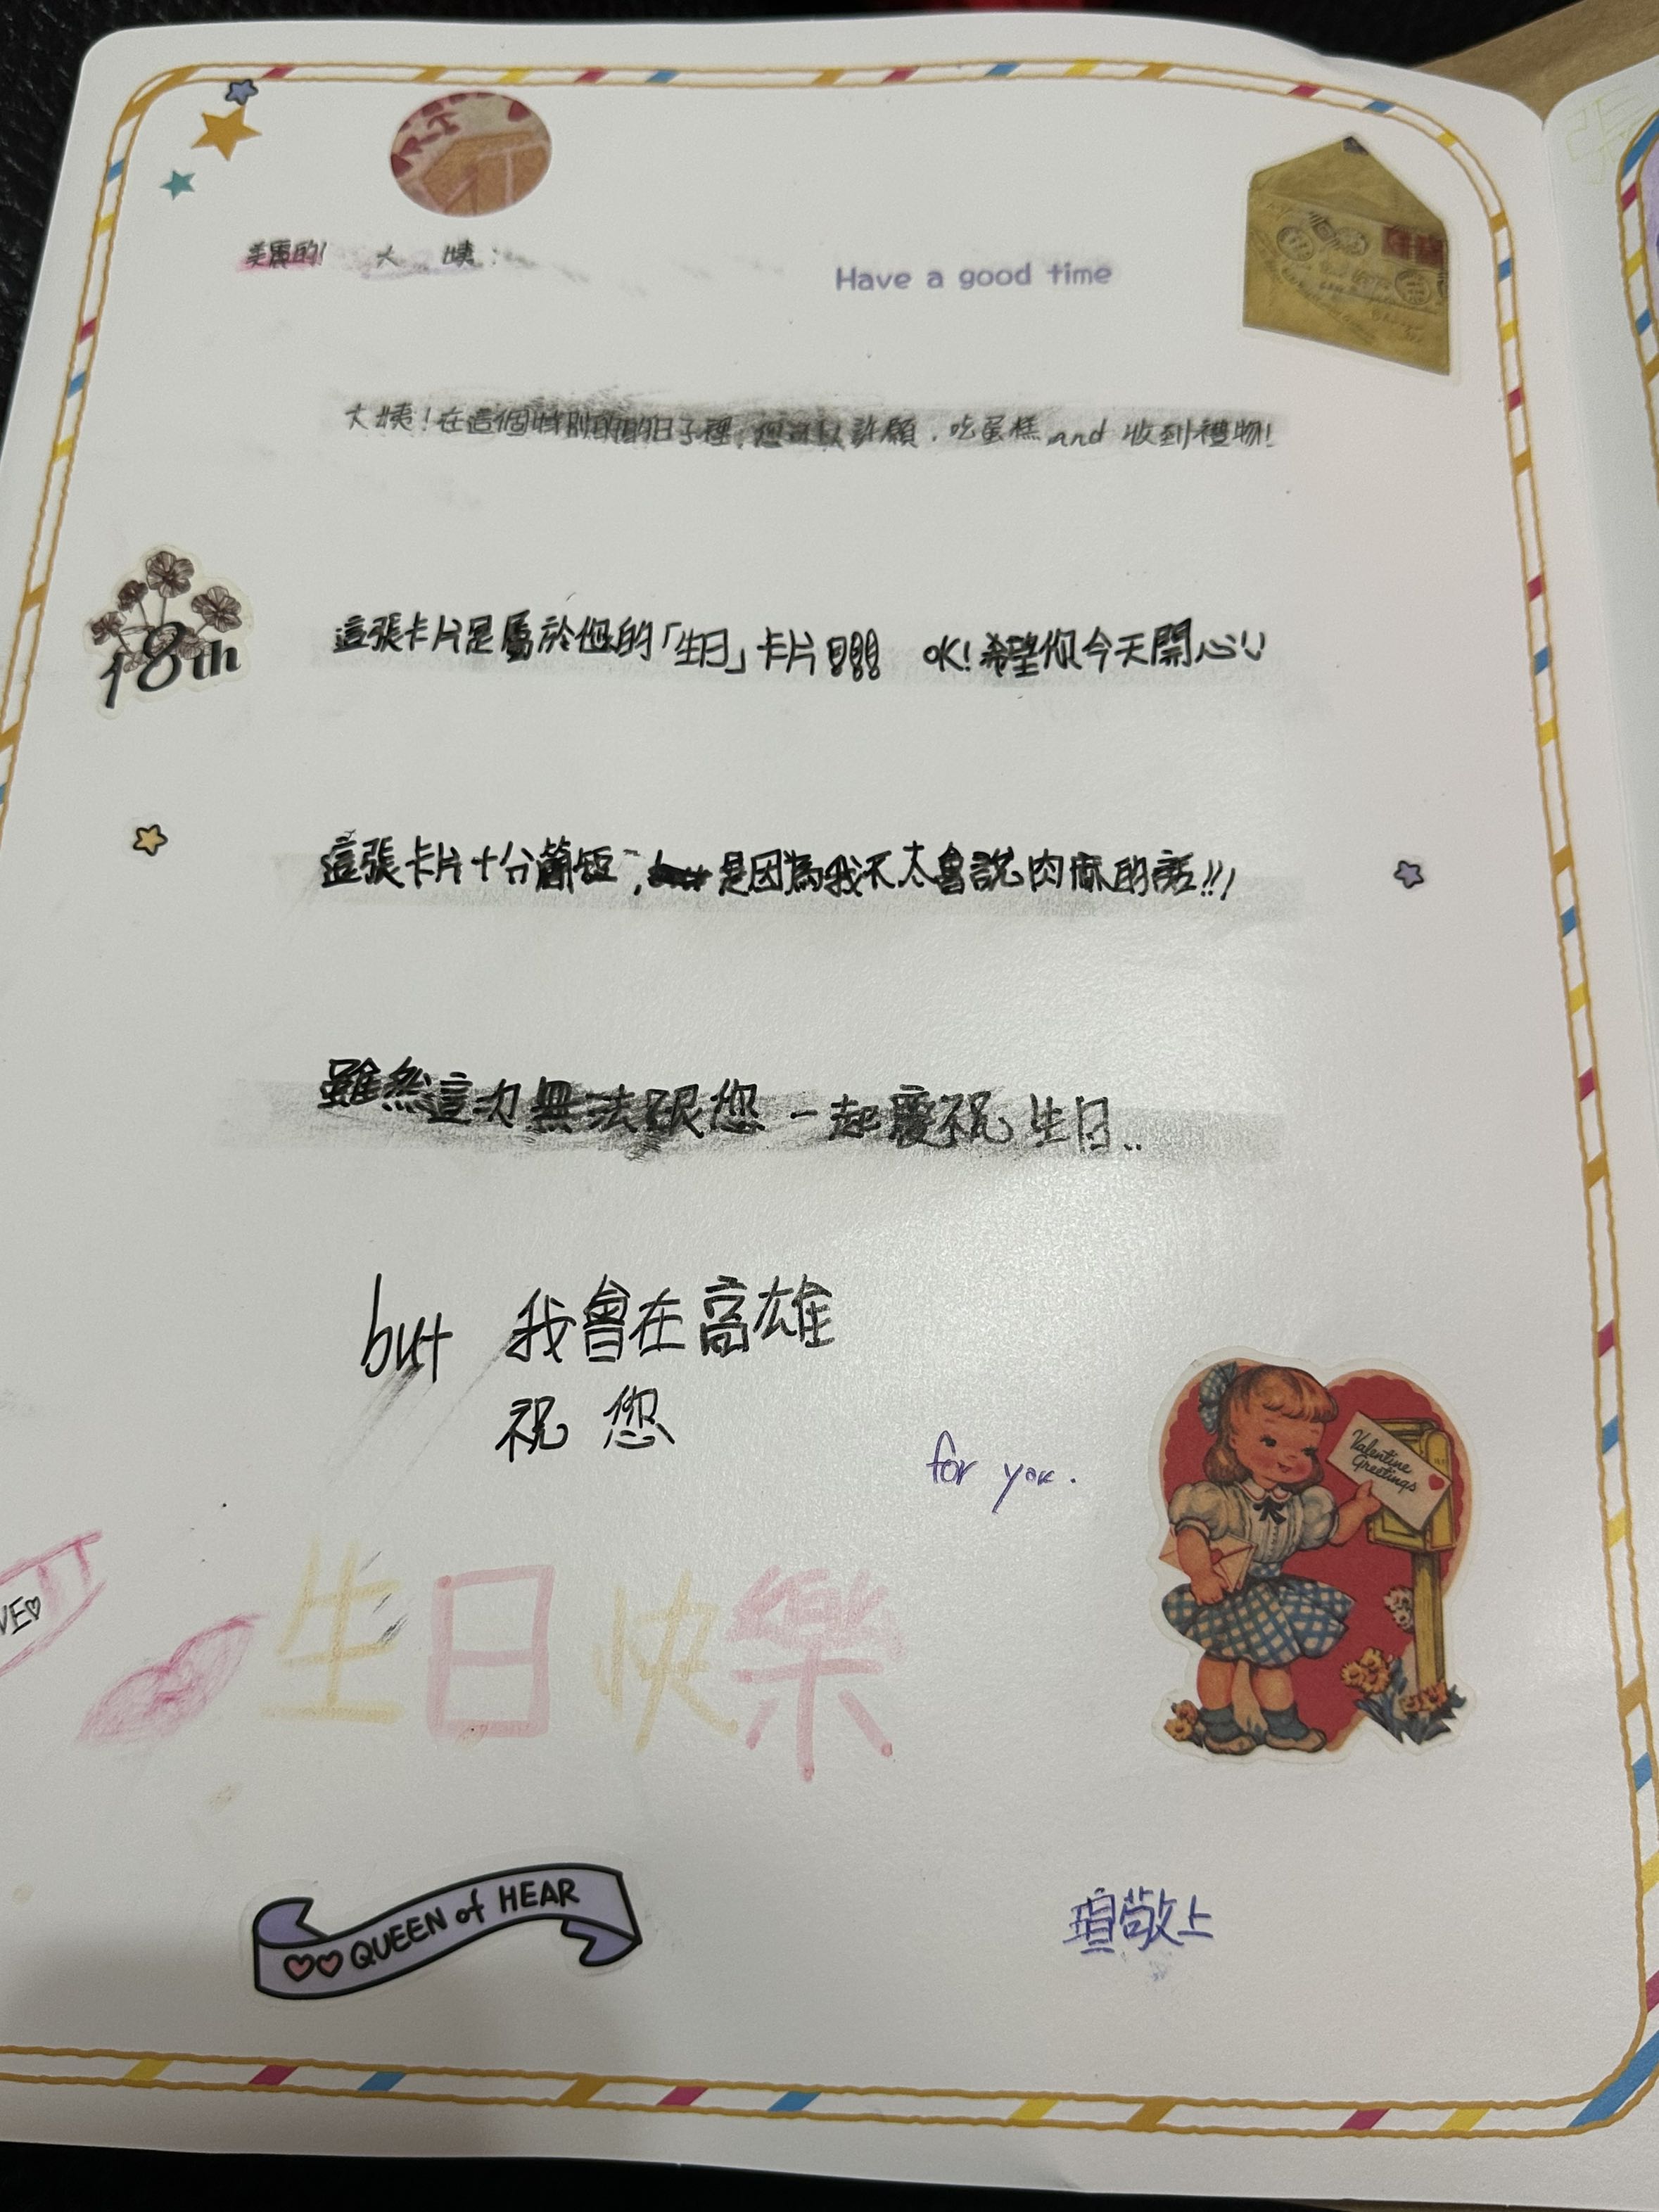 美麗的! 大 姨:
Have a good time
大姨!在這個特別的的日子裡,您可以許願,吃蛋糕 and 收到禮物!
18th
這張卡片是屬於您的「生日」卡片!!! OK! 希望你今天開心!!
這張卡片十分簡短, 是因為我不太會說肉麻的話!!!
雖然這次無法跟您一起慶祝生日..
but 我會在高雄
祝 您
for you.
Valentine
Greetings
VE♡
生日快樂
QUEEN of HEAR
瑄敬上